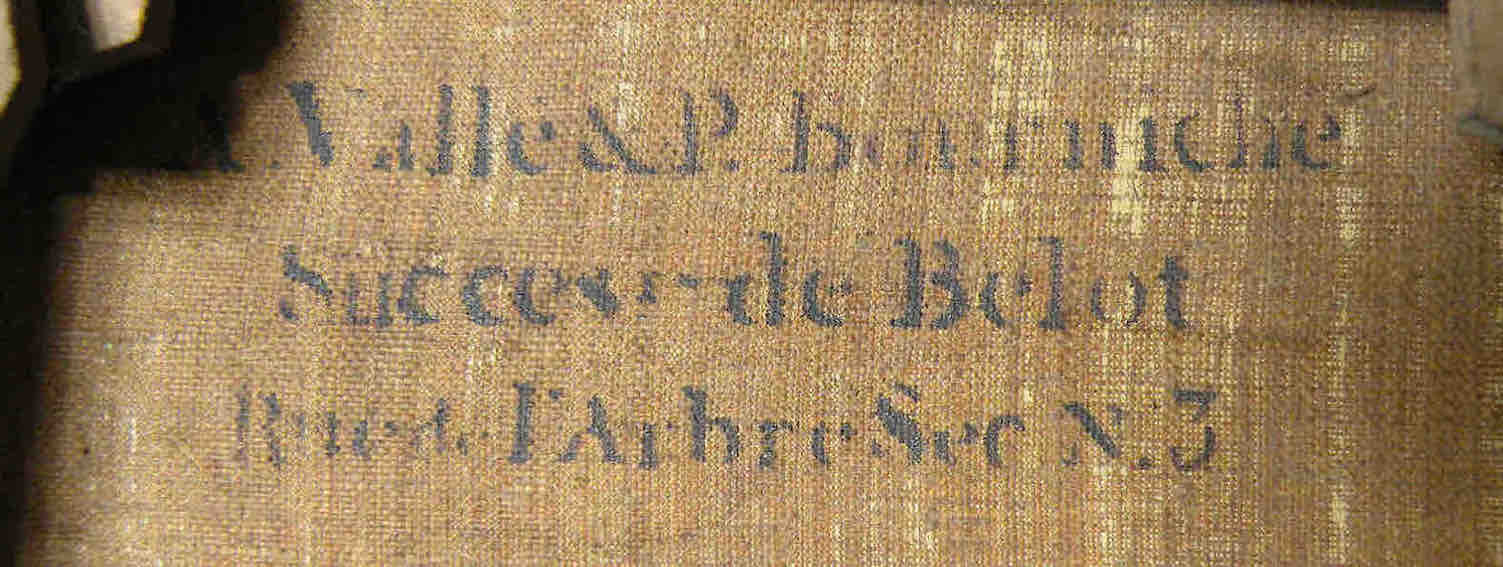 Vallé & P. bourniché
Succesr de Belot
Rue de l'Arbre Sec N. 3